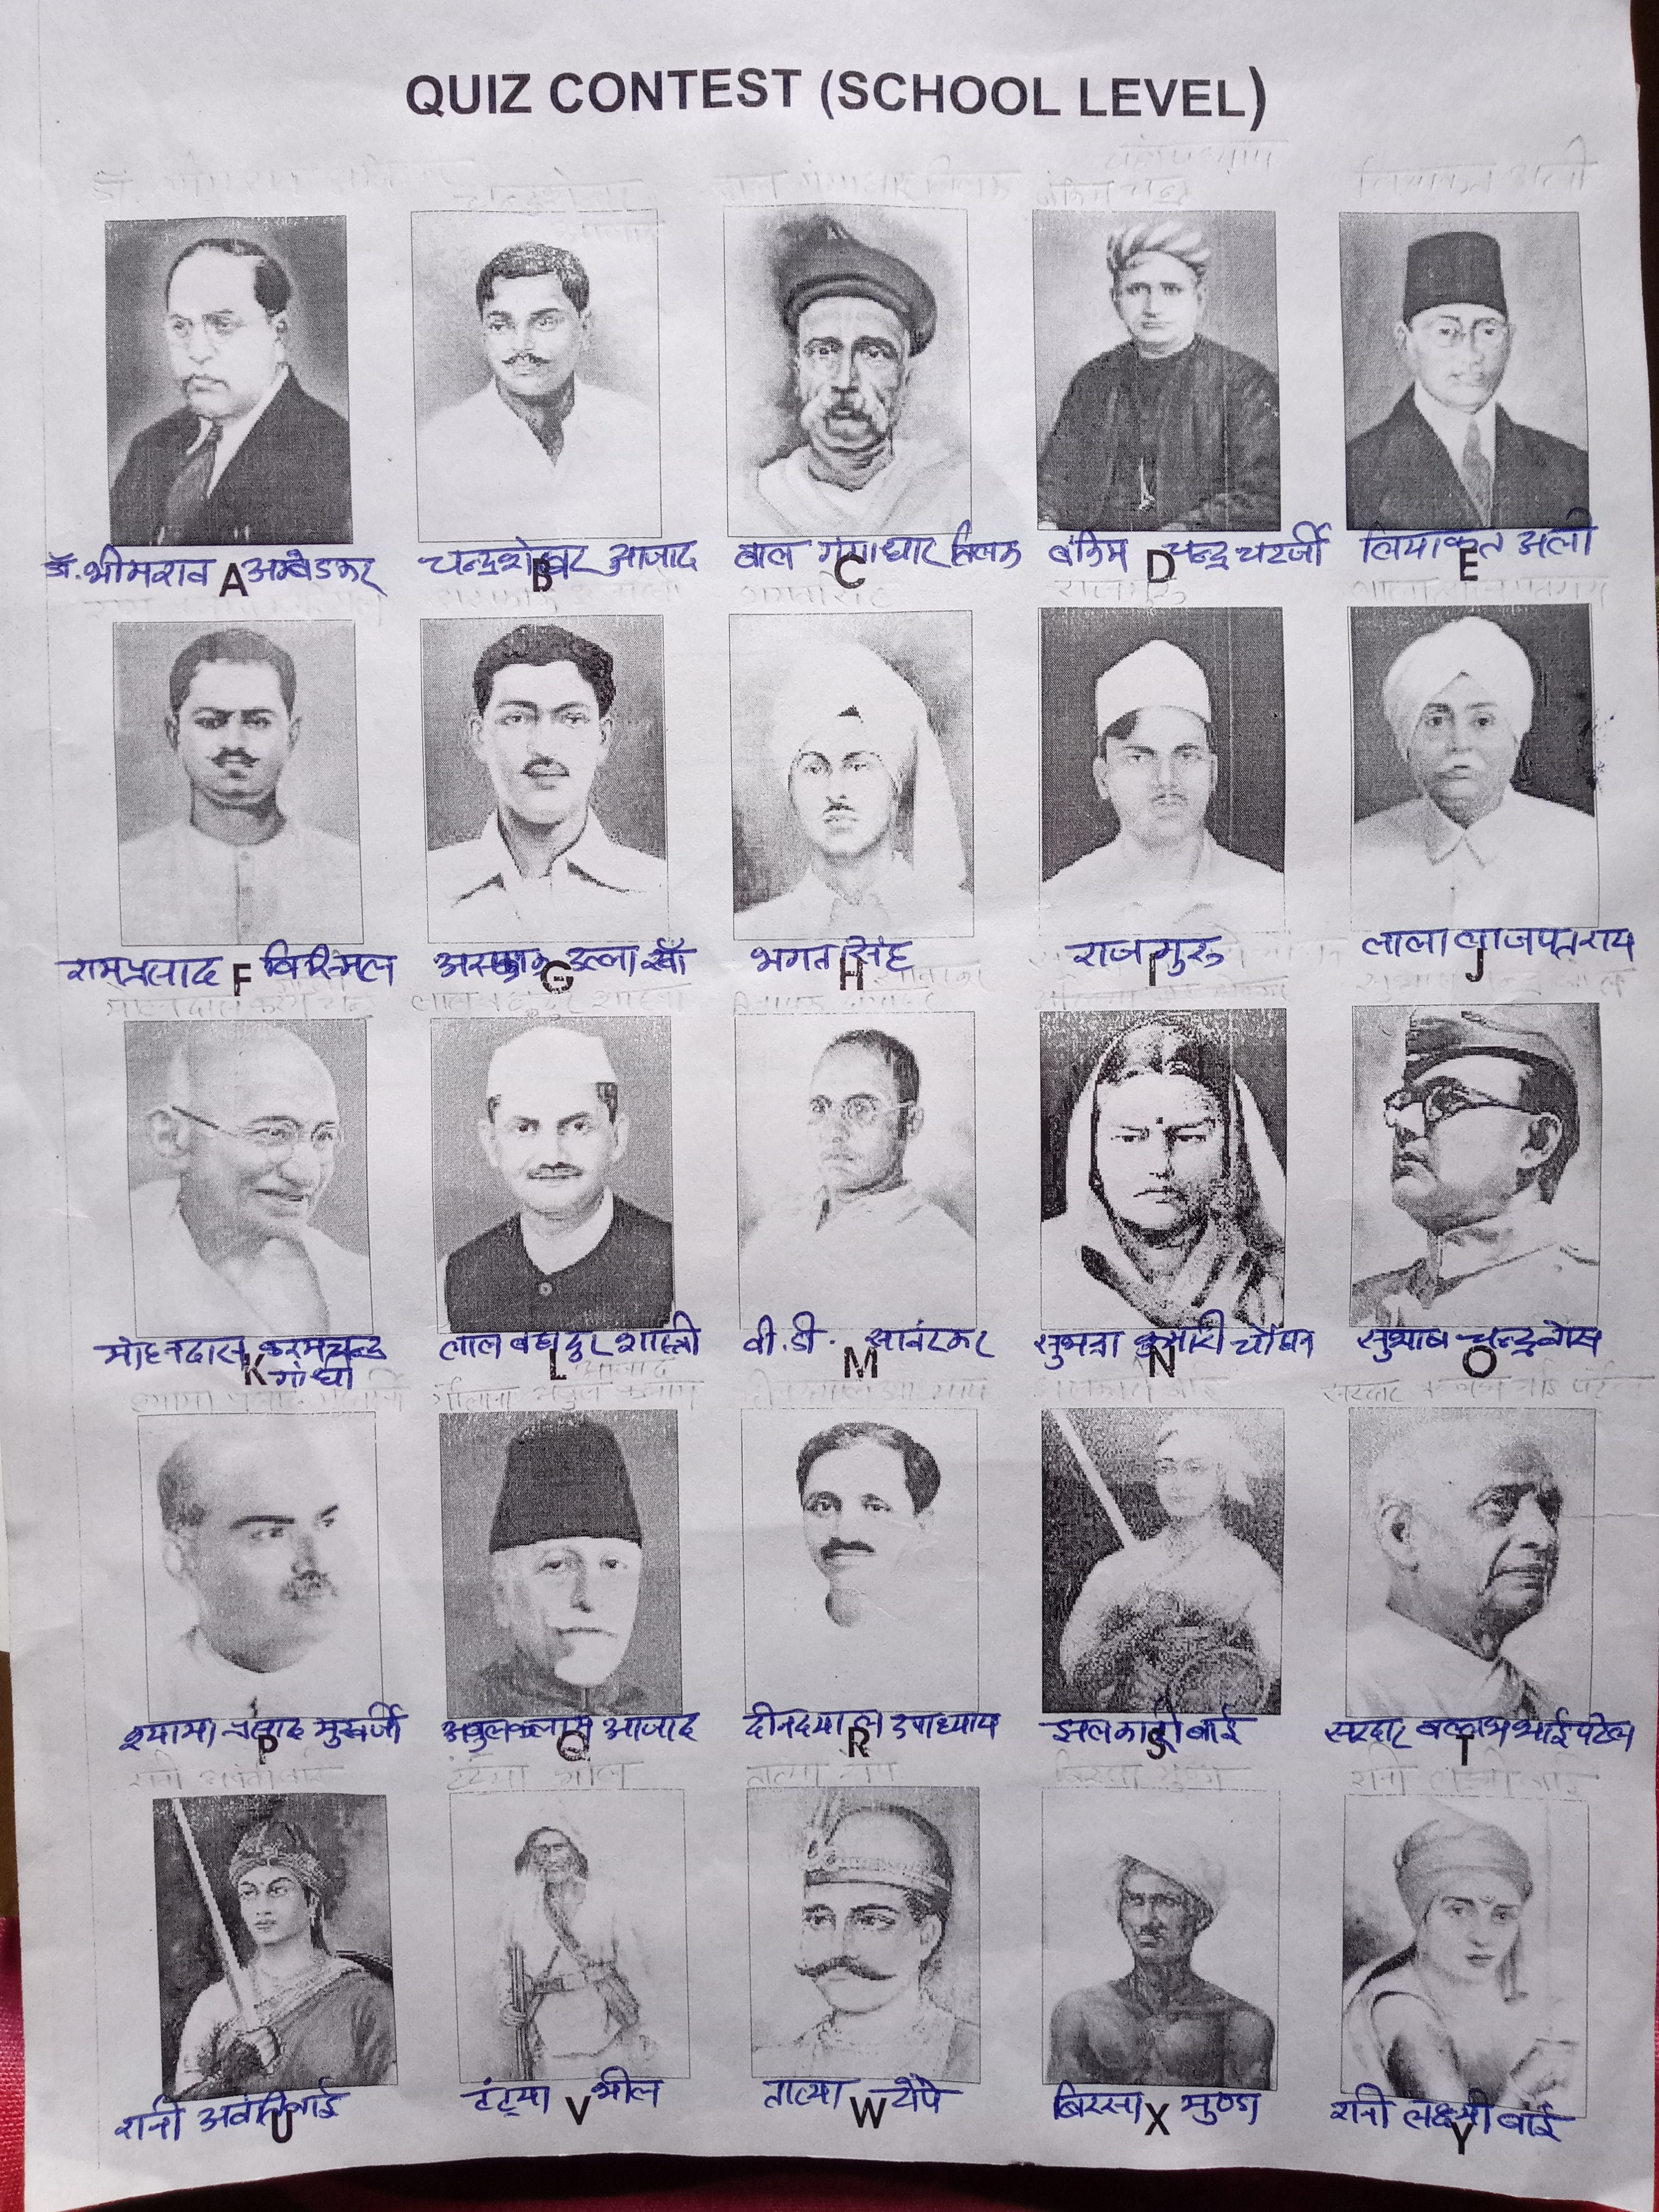 QUIZ CONTEST (SCHOOL LEVEL)
डॉ. भीमराव अम्बेडकर
A
चन्द्रशेखर आजाद
B
बाल गंगाधार तिलक
C
बंकिम चन्द्र चटर्जी
D
लियाकत अली
E
रामप्रसाद बिस्मिल
F
असफाक उल्ला खाँ
G
भगत सिंह
H
राजगुरु
I
लाला लाजपतराय
J
मोहनदास करमचन्द
गांधी
K
लाल बहादुर शास्त्री
L
वी.डी. सावरकर
M
सुभद्रा कुमारी चौहान
N
सुभाष चन्द्र बोस
O
श्यामा प्रसाद मुखर्जी
P
अबुल कलाम आजाद
Q
दीनदयाल उपाध्याय
R
झलकारी बाई
S
सरदार बल्लभ भाई पटेल
T
रानी अवंतीबाई
U
टंट्या भील
V
तात्या टोपे
W
बिरसा मुण्डा
X
रानी लक्ष्मी बाई
Y